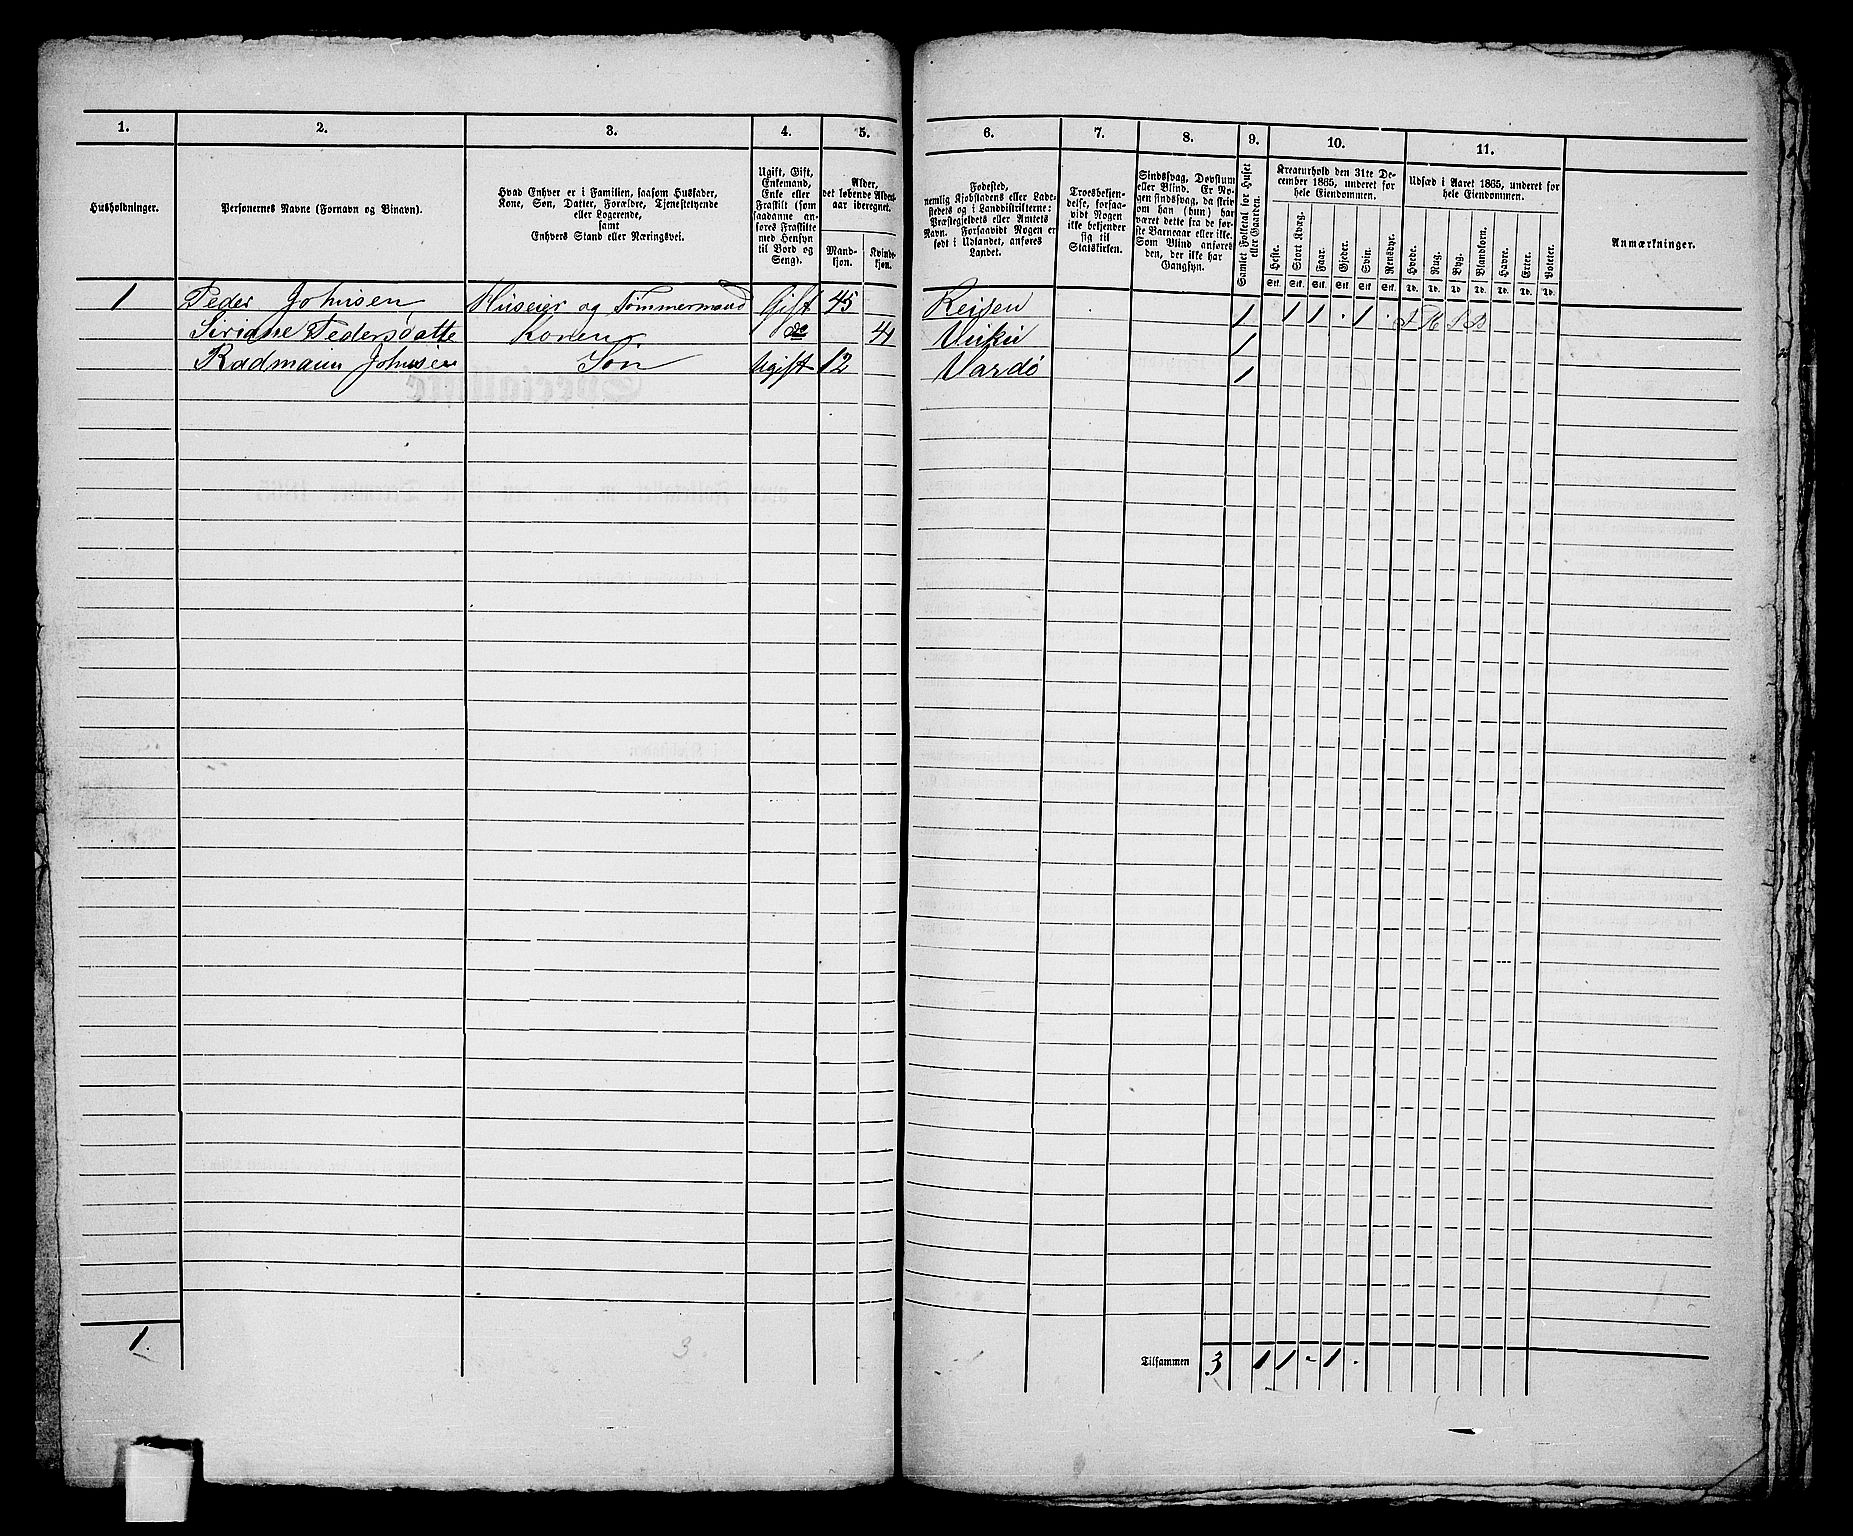 1. 2. 3. 4. 5. 6. 7. 8. 9. 10. 11.
Husholdninger.
Personernes Navne (Fornavn og Binavn).
Hvad Enhver er i Familien, saasom Husfader,
Kone, Søn, Datter, Forældre, Tjenestetyende
eller Logerende,
samt
Enhvers Stand eller Næringsvei.
Ugift, Gift,
Enkemand,
Enke eller
Fraskilt (som
saadanne an-
føres Fraskilte
med Hensyn
til Bord og
Seng).
Alder,
det løbende Alders-
aar iberegnet.
Mand-
kjøn.
Kvinde-
kjøn.
Fødested,
nemlig Kjøbstadens eller Lade-
stedets og i Landdistrikterne:
Præstegjeldets eller Amtets
Navn. Forsaavidt Nogen er
født i Udlandet, anføres
Landet.
Troesbekjen-
delse, forsaa-
vidt Nogen
ikke bekjender
sig til
Statskirken.
Sindssvag, Døvstum
eller Blind. Er No-
gen sindssvag, da skriv
om han (hun) har
været dette fra de før-
ste Barneaar eller ikke.
Som Blind anføres
den, der ikke har
Gangsyn.
Samlet Folketal for Huset
eller Gaarden.
Kreaturhold den 31te De-
cember 1865, underet for
hele Eiendommen.
Heste. Stort Kvæg. Faar. Gjeder. Svin. Rensdyr.
Stk. Stk. Stk. Stk. Stk. Stk.
Udsæd i Aaret 1865, underet for
hele Eiendommen.
Hvede. Rug. Byg. Blandkorn. Havre. Erter. Poteter.
Td. Td. Td. Td. Td. Td. Td.
Anmærkninger.
1 Peder Johnsen Huseier og Tømmermand Gift 45 Reisen 1 1 1 . 1 .
Siriane Pedersdatte Konen do 41 1
Radmann Johnsen Søn Ugift 12 Vardø 1
1.
3.
Tilsammen 3 1 1 - 1 .